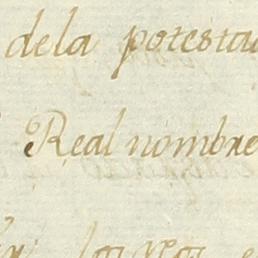 dela potesta
Real nombre